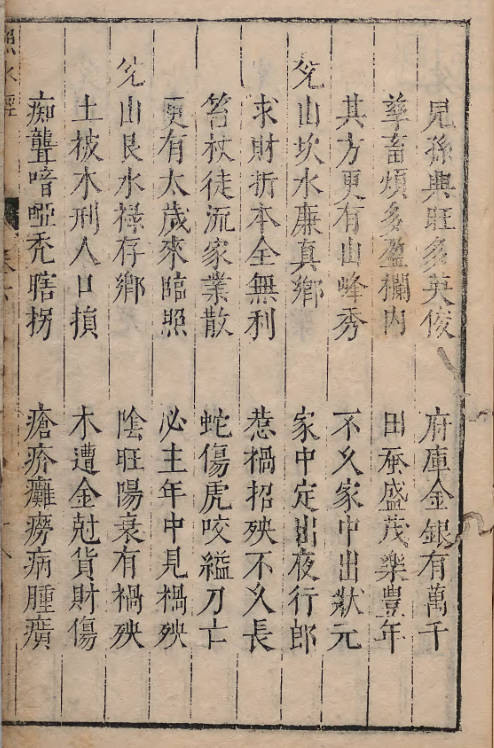 兒孫興旺多英俊 府庫金銀有萬千
孳畜煩多盈欄內 田蚕盛茂樂豊年
其方更有山峰秀 不久家中出狀元
兊山坎水廉真鄉 家中定出夜行郎
求財折本全無利 惹禍招殃不久長
笞杖徒流家業散 蛇傷虎咬縊刀亡
更有太歲來臨照 必主年中見禍殃
兊山艮水祿存鄉 陰旺陽衰有禍殃
土被水刑人口損 木遭金尅貨財傷
痴聾喑啞禿瞎拐 瘡疥癱癆病腫癀
水經